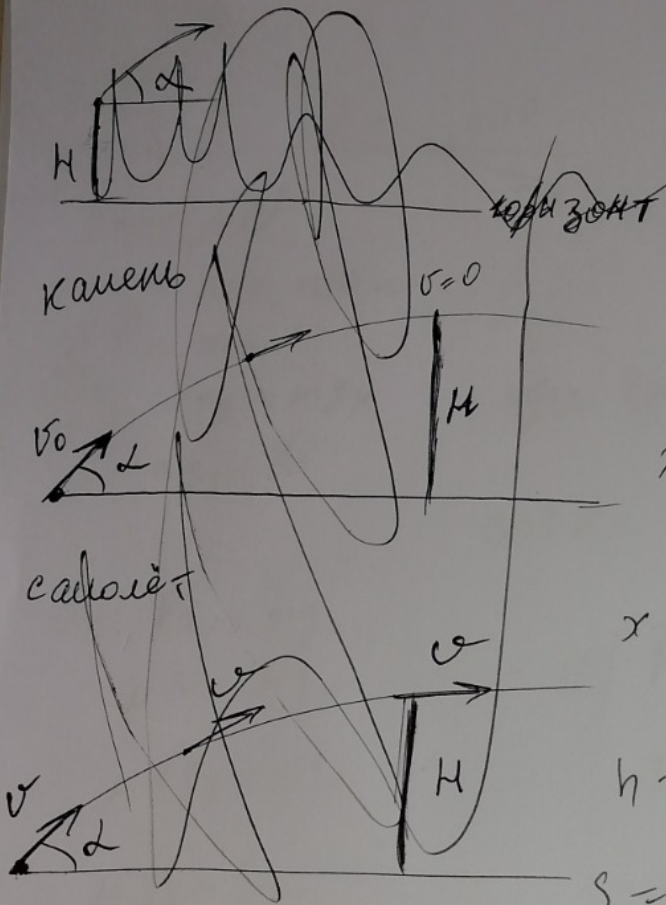 α
H
горизонт
камень
v=0
v₀
α
H
самолёт
x
v
v
v
α
H
h
S =